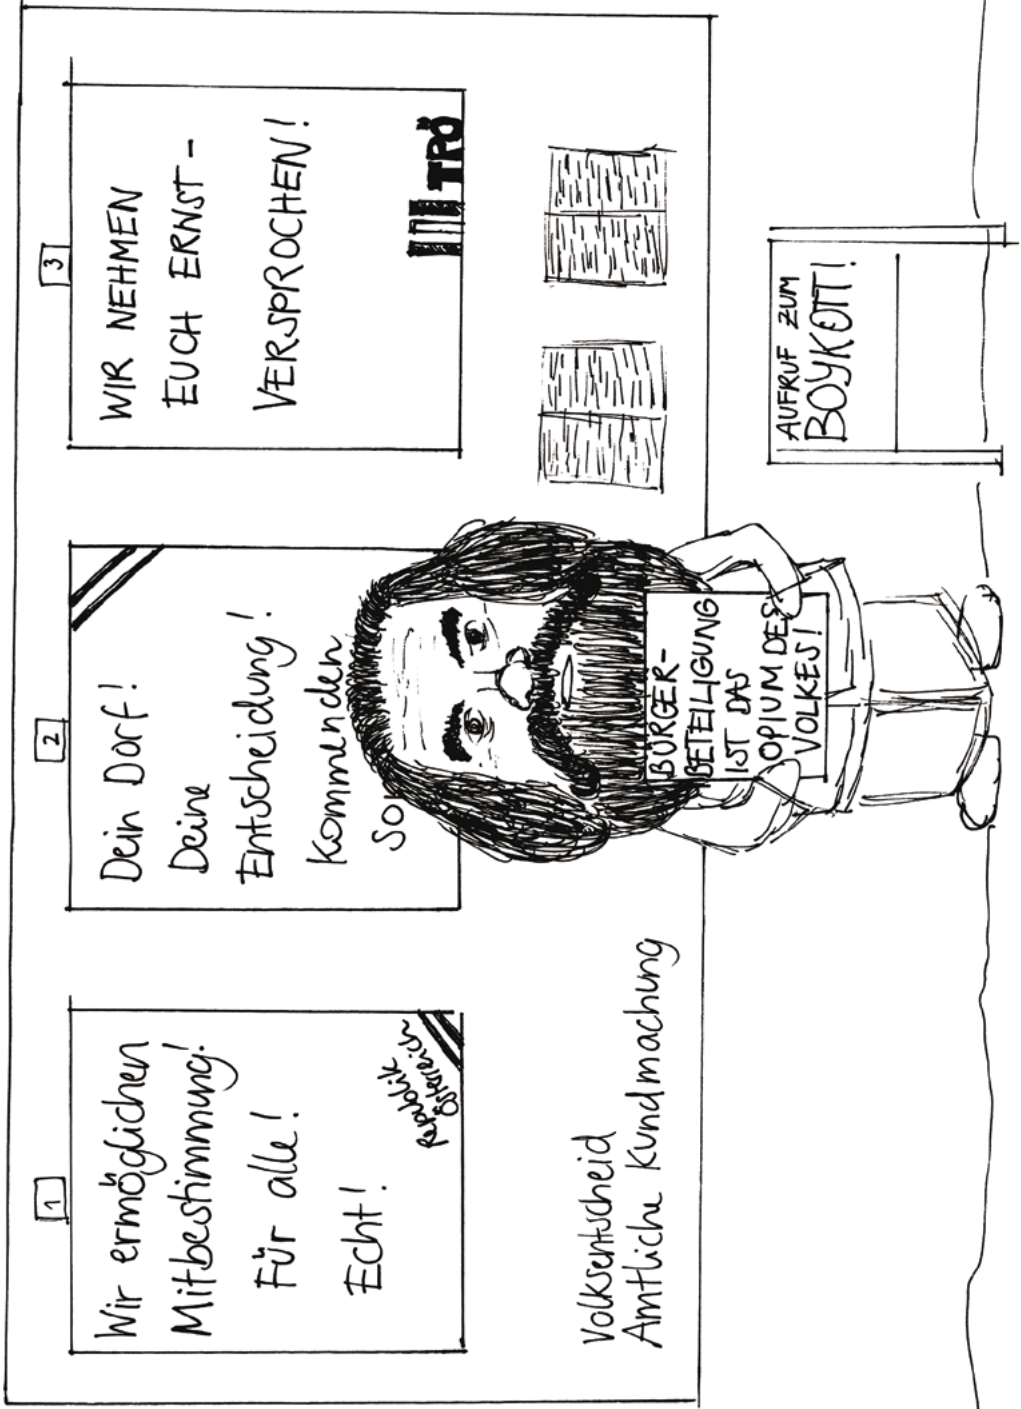 1
Wir ermöglichen
Mitbestimmung!
Für alle!
Echt!
Republik
Österreich
2
Dein Dorf!
Deine
Entscheidung!
Kommenden
3
WIR NEHMEN
EUCH ERNST –
VERSPROCHEN!
TRÖ
Volksentscheid
Amtliche Kundmachung
BÜRGER-
BETEILIGUNG
IST DAS
OPIUM DES
VOLKES!
AUFRUF ZUM
BOYKOTT!